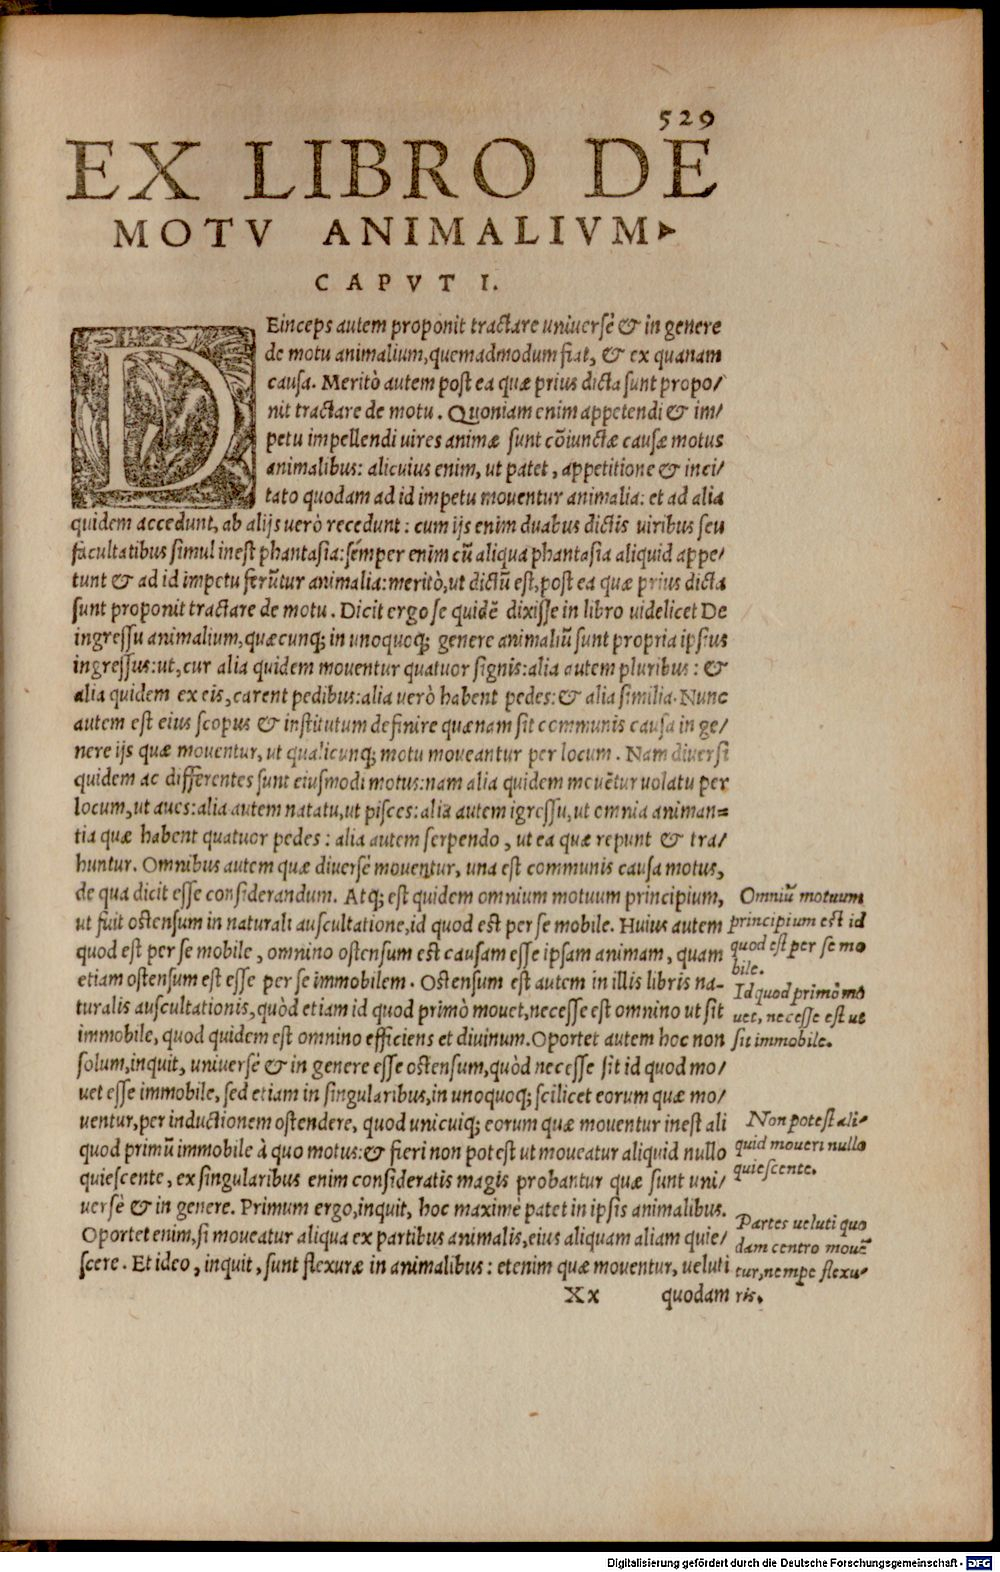 529
EX LIBRO DE
MOTV ANIMALIVM
CAPVT I.
DEinceps autem proponit tractare universè & in genere
de motu animalium, quemadmodum fiat, & ex quanam
causa. Meritò autem post ea quæ prius dicta sunt propo/
nit tractare de motu. Quoniam enim appetendi & im/
petu impellendi uires animæ sunt cõiunctæ causæ motus
animalibus: alicuius enim, ut patet, appetitione & inci/
tato quodam ad id impetu mouentur animalia: et ad alia
quidem accedunt, ab alijs uerò recedunt: cum ijs enim duabus dictis uiribus seu
facultatibus simul inest phantasia: sẽmper enim cũ aliqua phantasia aliquid appe/
tunt & ad id impetu ferũtur animalia: meritò, ut dictũ est, post ea quæ prius dicta
sunt proponit tractare de motu. Dicit ergo se quidẽ dixisse in libro uidelicet De
ingressu animalium, quæcunq; in unoquoq; genere animaliũ sunt propria ipsius
ingressus: ut, cur alia quidem mouentur quatuor signis: alia autem pluribus: &
alia quidem ex eis, carent pedibus: alia uerò habent pedes: & alia similia. Nunc
autem est eius scopus & institutum definire quænam sit communis causa in ge/
nere ijs quæ mouentur, ut qualicunq; motu moueantur per locum. Nam diuersi
quidem ac differentes sunt eiusmodi motus: nam alia quidem mouẽtur uolatu per
locum, ut aues: alia autem natatu, ut pisces: alia autem igressu, ut omnia animan=
tia quæ habent quatuor pedes: alia autem serpendo, ut ea quæ repunt & tra/
huntur. Omnibus autem quæ diuersè mouentur, una est communis causa motus,
de qua dicit esse considerandum. Atq; est quidem omnium motuum principium,
ut fuit ostensum in naturali auscultatione, id quod est per se mobile. Huius autem
quod est per se mobile, omnino ostensum est causam esse ipsam animam, quam
etiam ostensum est esse per se immobilem. Ostensum est autem in illis libris na-
turalis auscultationis, quòd etiam id quod primò mouet, necesse est omnino ut sit
immobile, quod quidem est omnino efficiens et diuinum. Oportet autem hoc non
solum, inquit, uniuersè & in genere esse ostensum, quòd necesse sit id quod mo/
uet esse immobile, sed etiam in singularibus, in unoquoq; scilicet eorum quæ mo/
uentur, per inductionem ostendere, quod unicuiq; eorum quæ mouentur inest ali
quod primũ immobile à quo motus: & fieri non potest ut moueatur aliquid nullo
quiescente, ex singularibus enim consideratis magis probantur quæ sunt uni/
uersè & in genere. Primum ergo, inquit, hoc maximè patet in ipsis animalibus.
Oportet enim, si moueatur aliqua ex partibus animalis, eius aliquam aliam quie/
scere. Et ideo, inquit, sunt flexuræ in animalibus: etenim quæ mouentur, ueluti
Xx quodam
Omniũ motuum
principium est id
quod est per se mo
bile.
Id quod primò mo
uet, necesse est ut
sit immobile.
Non potest ali-
quid moueri nullo
quiescente.
Partes ueluti quo
dam centro mouẽ
tur, nempe flexu-
ris.
Digitalisierung gefördert durch die Deutsche Forschungsgemeinschaft - DFG